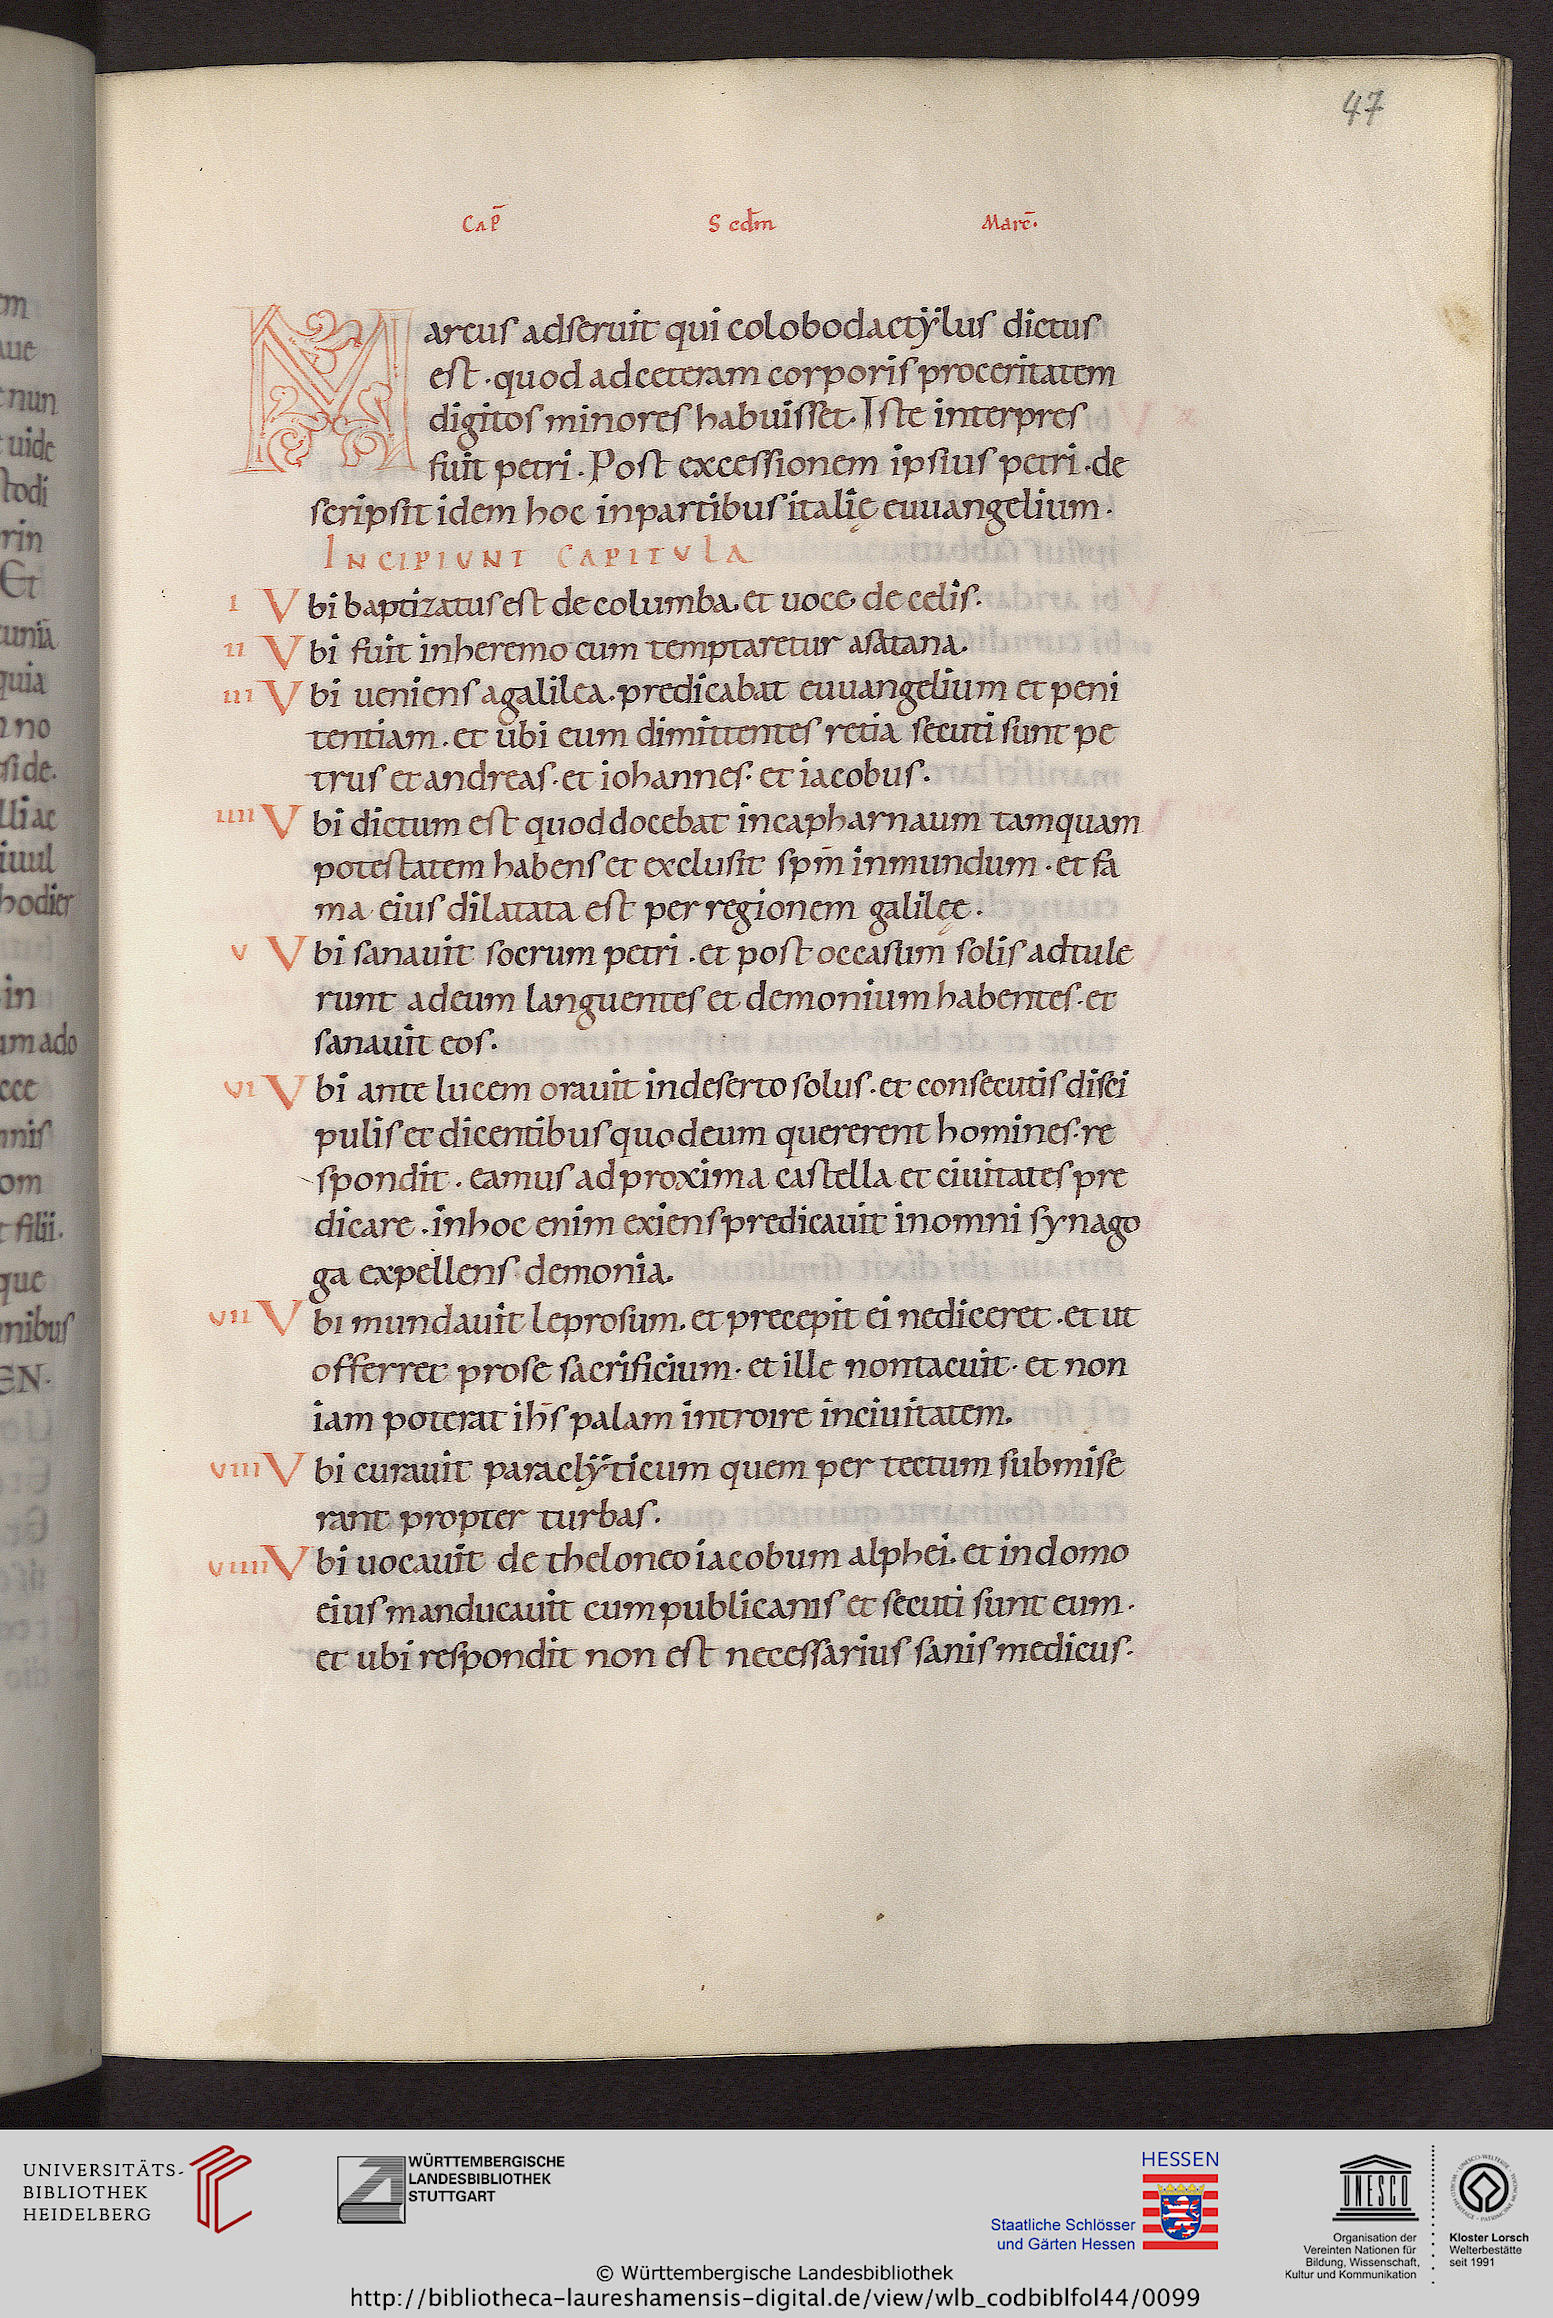 47
CaP̄ S cdm̄ Marc̄.
Marcus adseruit qui colobodactẏlus dictus
est · quod adceteram corporis proceritatem
digitos minores habuisset. Iste interpres
fuit petri . Post excessionem ipsius petri . de
scripsit idem hoc inpartibus italię euuangelium .
INCIPIUNT CAPITULA
I Vbi baptizatus est de columba. et uoce de celis .
II Vbi fuit inheremo cum temptaretur asatana.
III Vbi ueniens agalilea . predicabat euuangelium et peni
tentiam . et ubi eum dimittentes retia secuti sunt pe
trus et andreas . et iohannes . et iacobus .
IIII Vbi dictum est quod docebat incapharnaum tamquam
potestatem habens et exclusit spm̄ inmundum . et fa
ma eius dilatata est per regionem galilęe .
V Vbi sanauit socrum petri . et post occasum solis adtule
runt adeum languentes et demonium habentes . et
sanauit eos .
VI Vbi ante lucem orauit indeserto solus . et consecutis disci
pulis et dicentibus quodeum quererent homines . re
spondit . eamus adproxima castella et ciuitates pre
dicare . inhoc enim exiens predicauit inomni synago
ga expellens demonia.
VII Vbi mundauit leprosum . et precepit ei nediceret . et ut
offerret prose sacrificium . et ille nontacuit . et non
iam poterat ihs̄ palam introire inciuitatem.
VIII Vbi curauit paraclẏticum quem per tectum submise
rant propter turbas .
VIIII Vbi uocauit de theloneo iacobum alphei. et indomo
eius manducauit cum publicanis et secuti sunt eum .
et ubi respondit non est necessarius sanis medicus .
UNIVERSITÄTS-
BIBLIOTHEK
HEIDELBERG
WÜRTTEMBERGISCHE
LANDESBIBLIOTHEK
STUTTGART
HESSEN
Staatliche Schlösser
und Gärten Hessen
UNESCO
Organisation der
Vereinten Nationen für
Bildung, Wissenschaft,
Kultur und Kommunikation
Kloster Lorsch
Welterbestätte
seit 1991
© Württembergische Landesbibliothek
http://bibliotheca-laureshamensis-digital.de/view/wlb_codbiblfol44/0099